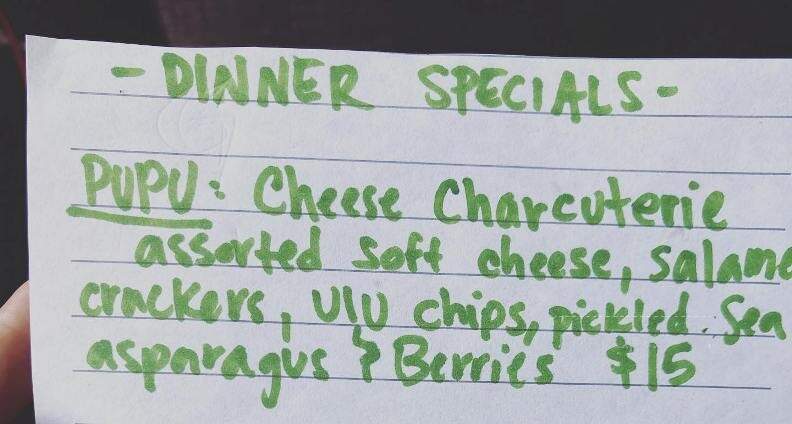 - DINNER SPECIALS -
PUPU: Cheese Charcuterie
assorted soft cheese, salame
crackers, ULU chips, pickled. Sea
asparagus & Berries $15